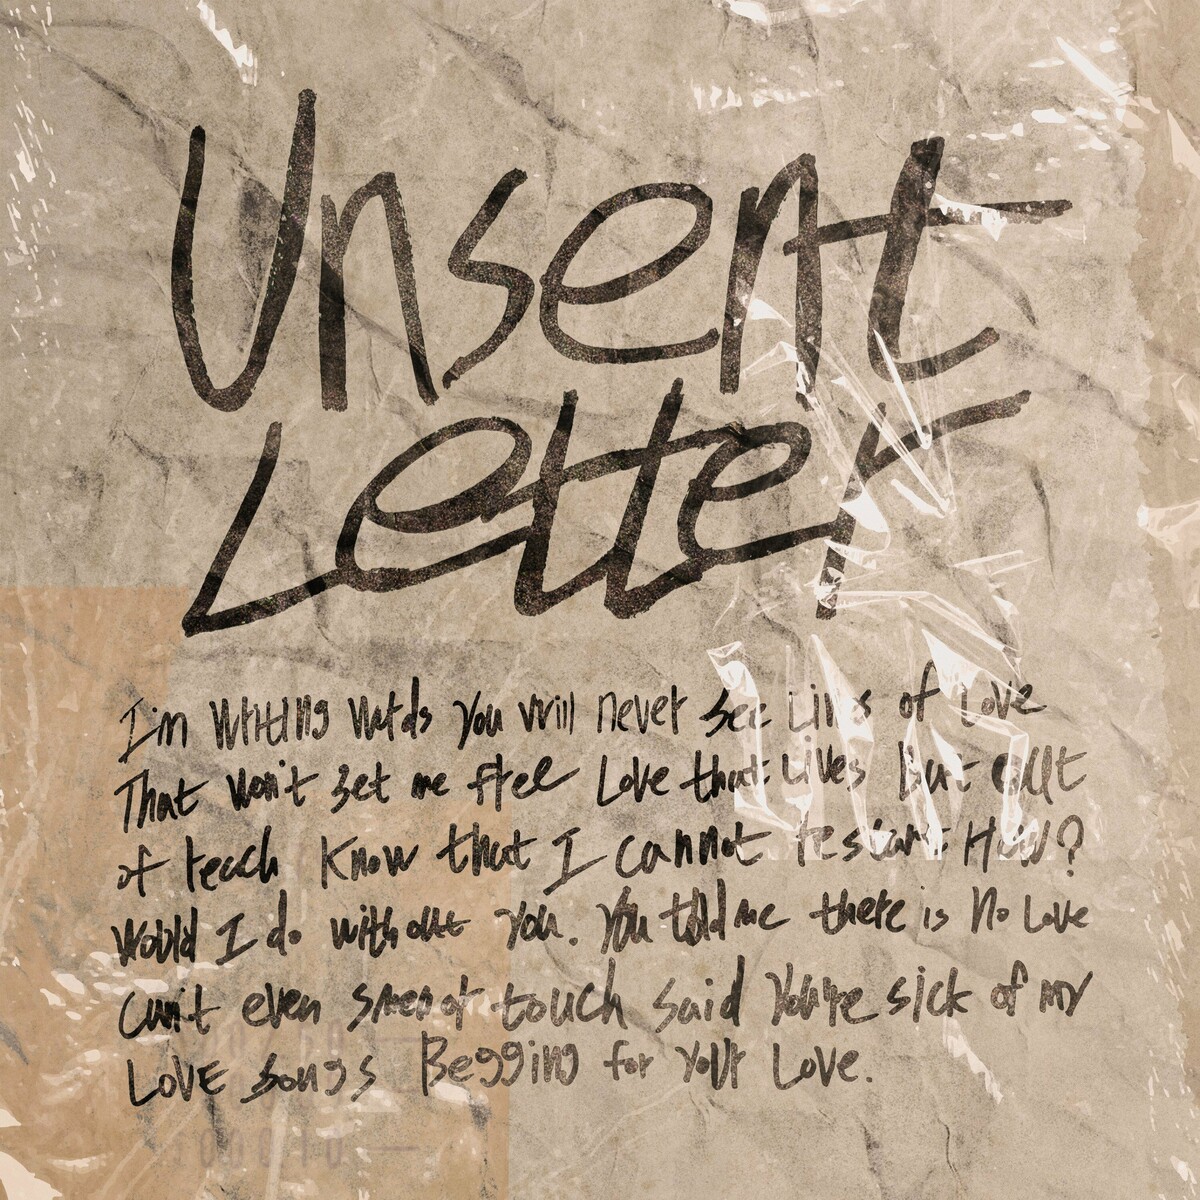 Unsent
Letter
I'm Writing Words you will never see Lines of Love
That won't set me free Love that Lives But out
of reach Know that I cannot restart How?
Would I do without you. You told me there is No Love
Can't even touch Said You're sick of my
LOVE songs Begging for your Love.